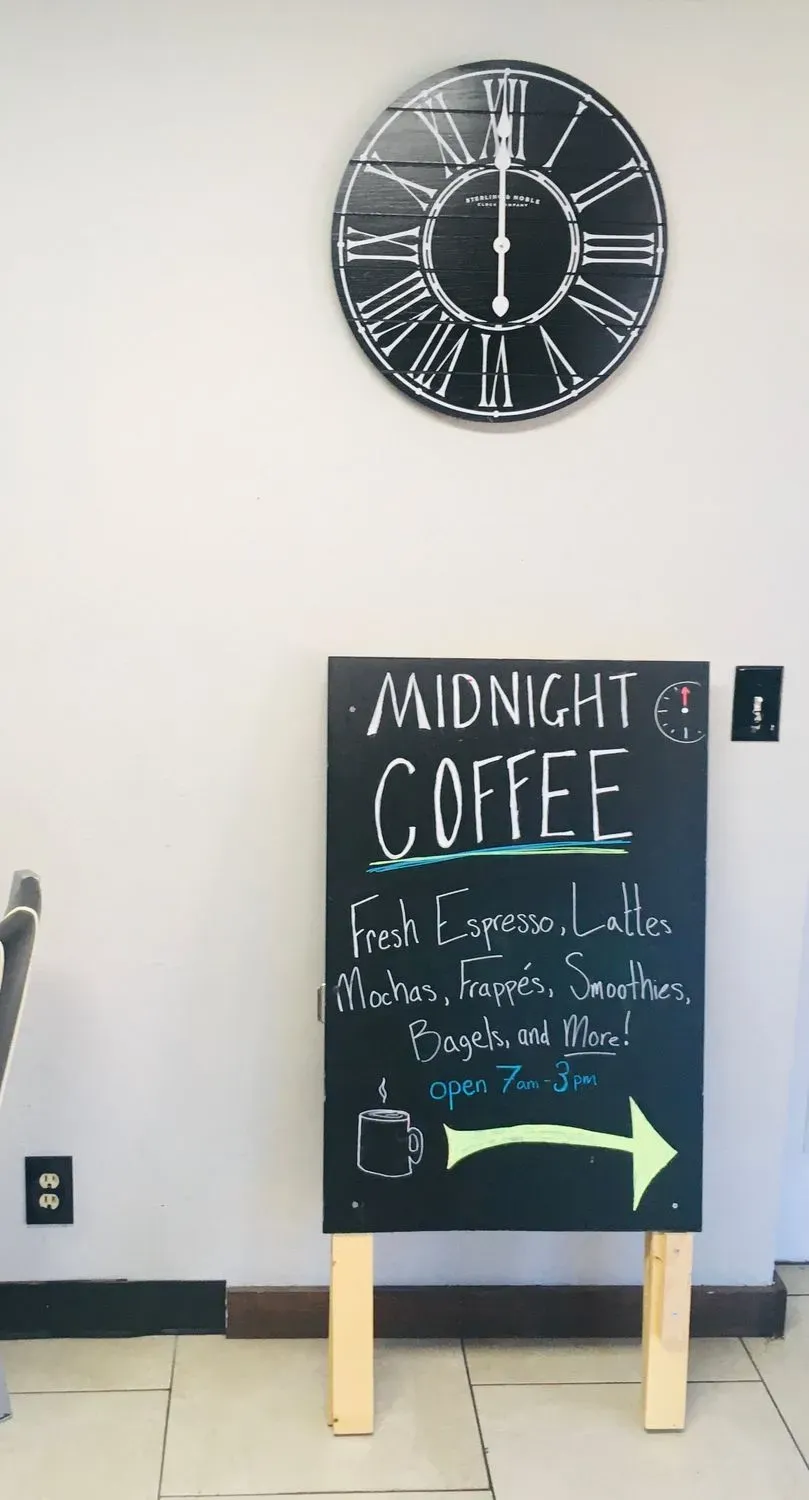 XII
I
II
III
IIII
V
VI
VII
VIII
IX
X
XI
STERLING & NOBLE
CLOCK COMPANY
MIDNIGHT
COFFEE
Fresh Espresso, Lattes
Mochas, Frappés, Smoothies,
Bagels, and More!
open 7am-3pm